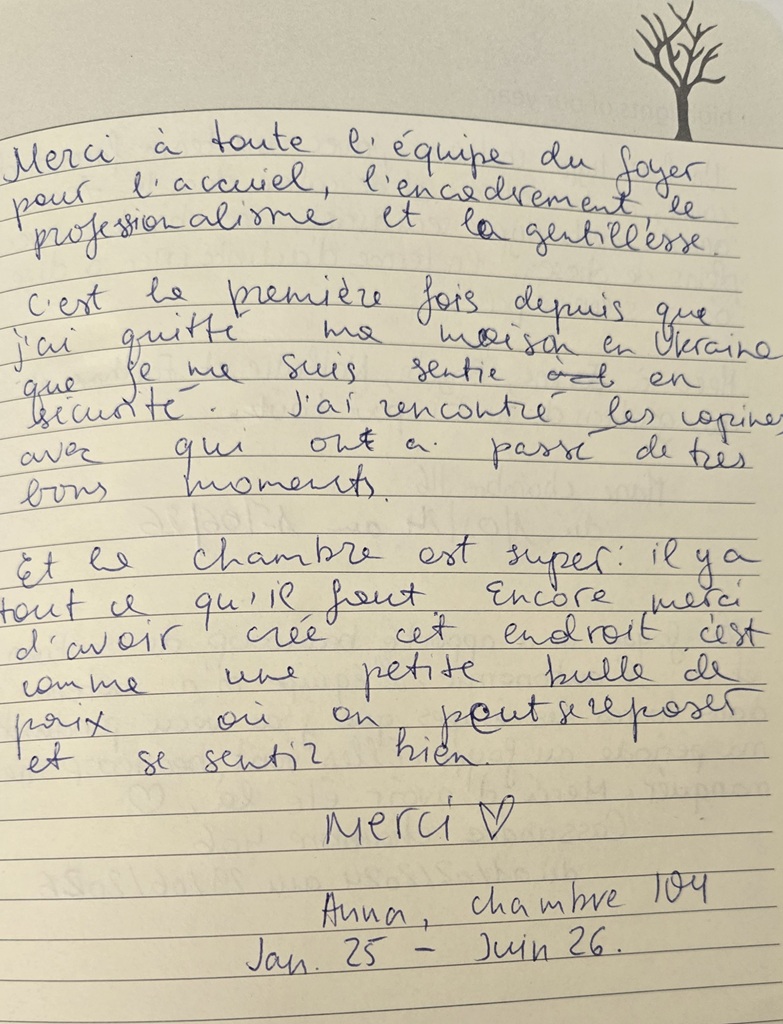 Merci à toute l'équipe du foyer
pour l'accuiel, l'encadrement, le
professionalisme et la gentillesse.
C'est la première fois depuis que
j'ai quitté ma maison en Ukraine
que je me suis sentie en
sécurité. J'ai rencontré les copines
avec qui ont a passé de très
bons moments.
Et la chambre est super: il y a
tout ce qu'il faut. Encore merci
d'avoir créé cet endroit c'est
comme une petite bulle de
paix où on peut se reposer
et se sentir bien.
Merci ♡
Anna, chambre 104
Jan. 25 – Juin 26.